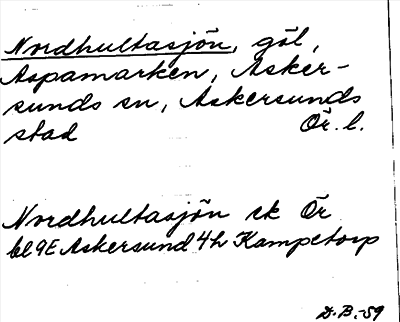 Nordhultasjön, göl,
Aspamarken, Asker-
sunds sn, Askersunds
stad Ör. l.
Nordhultasjön sk Ör
bl 9E Askersund 4h Kampetorp
D.B.-59